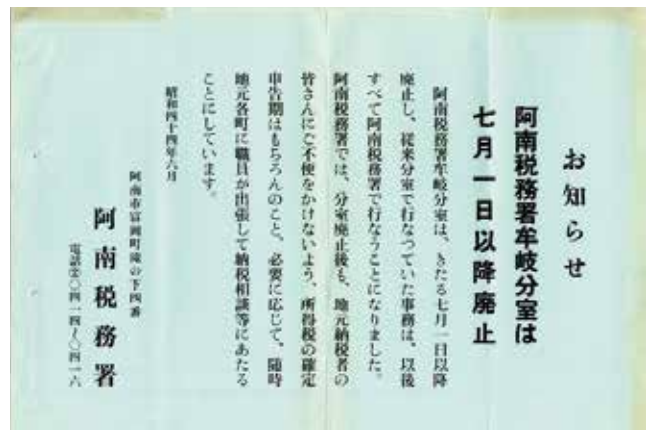 お知らせ
阿南税務署牟岐分室は
七月一日以降廃止
阿南税務署牟岐分室は、きたる七月一日以降
廃止し、従来分室で行なつていた事務は、以後
すべて阿南税務署で行なうことになりました。
阿南税務署では、分室廃止後も、地元納税者の
皆さんにご不便をかけないよう、所得税の確定
申告期はもちろんのこと、必要に応じて、随時
地元各町に職員が出張して納税相談等にあたる
ことにしています。
昭和四十四年六月
阿南市富岡町滝の下四番
阿南税務署
電話②〇四一四~〇四一六